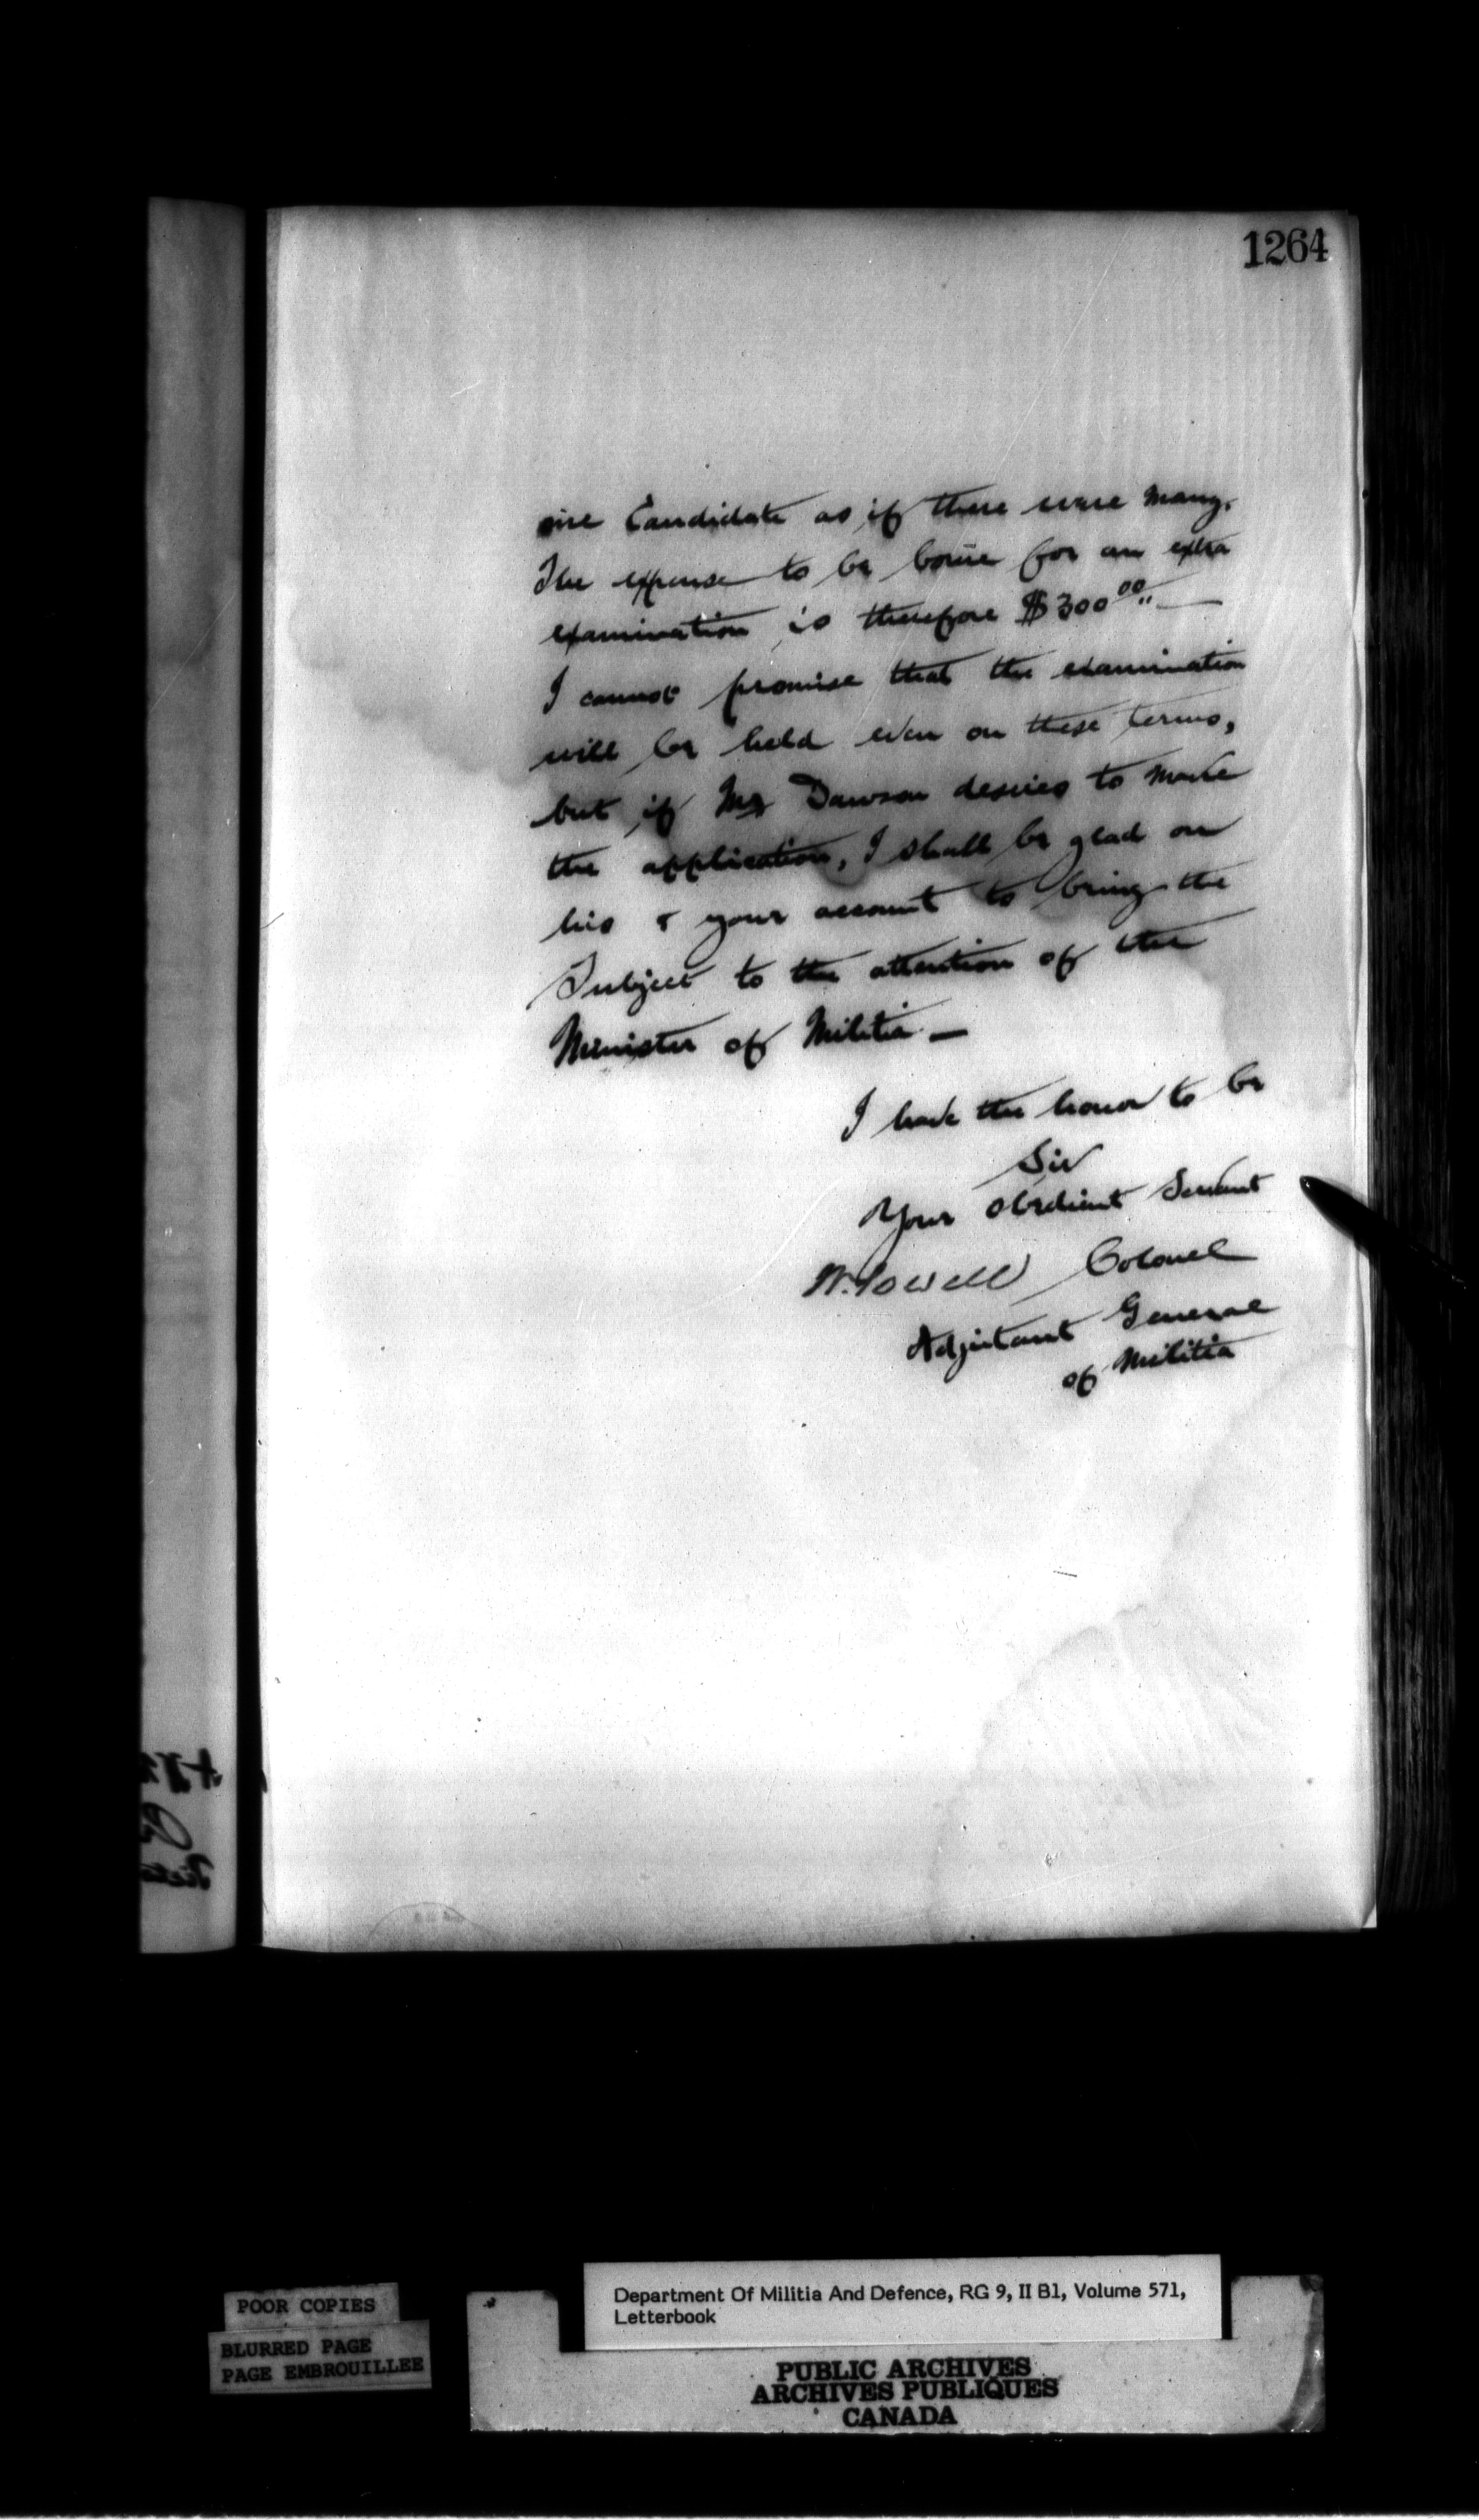 1264
one Candidate as if there were many.
The expense to be borne for an extra
examination is therefore $300 00.
I cannot promise that the examination
will be held even on these terms,
but if Mr Dawson desires to make
the application, I shall be glad on
his & your account to bring the
Subject to the attention of the
Minister of Militia —
I have the honor to be
Sir
Your obedient Servant
W. Powell Colonel
Adjutant General
of Militia
POOR COPIES
BLURRED PAGE
PAGE EMBROUILLEE
Department Of Militia And Defence, RG 9, II B1, Volume 571,
Letterbook
PUBLIC ARCHIVES
ARCHIVES PUBLIQUES
CANADA